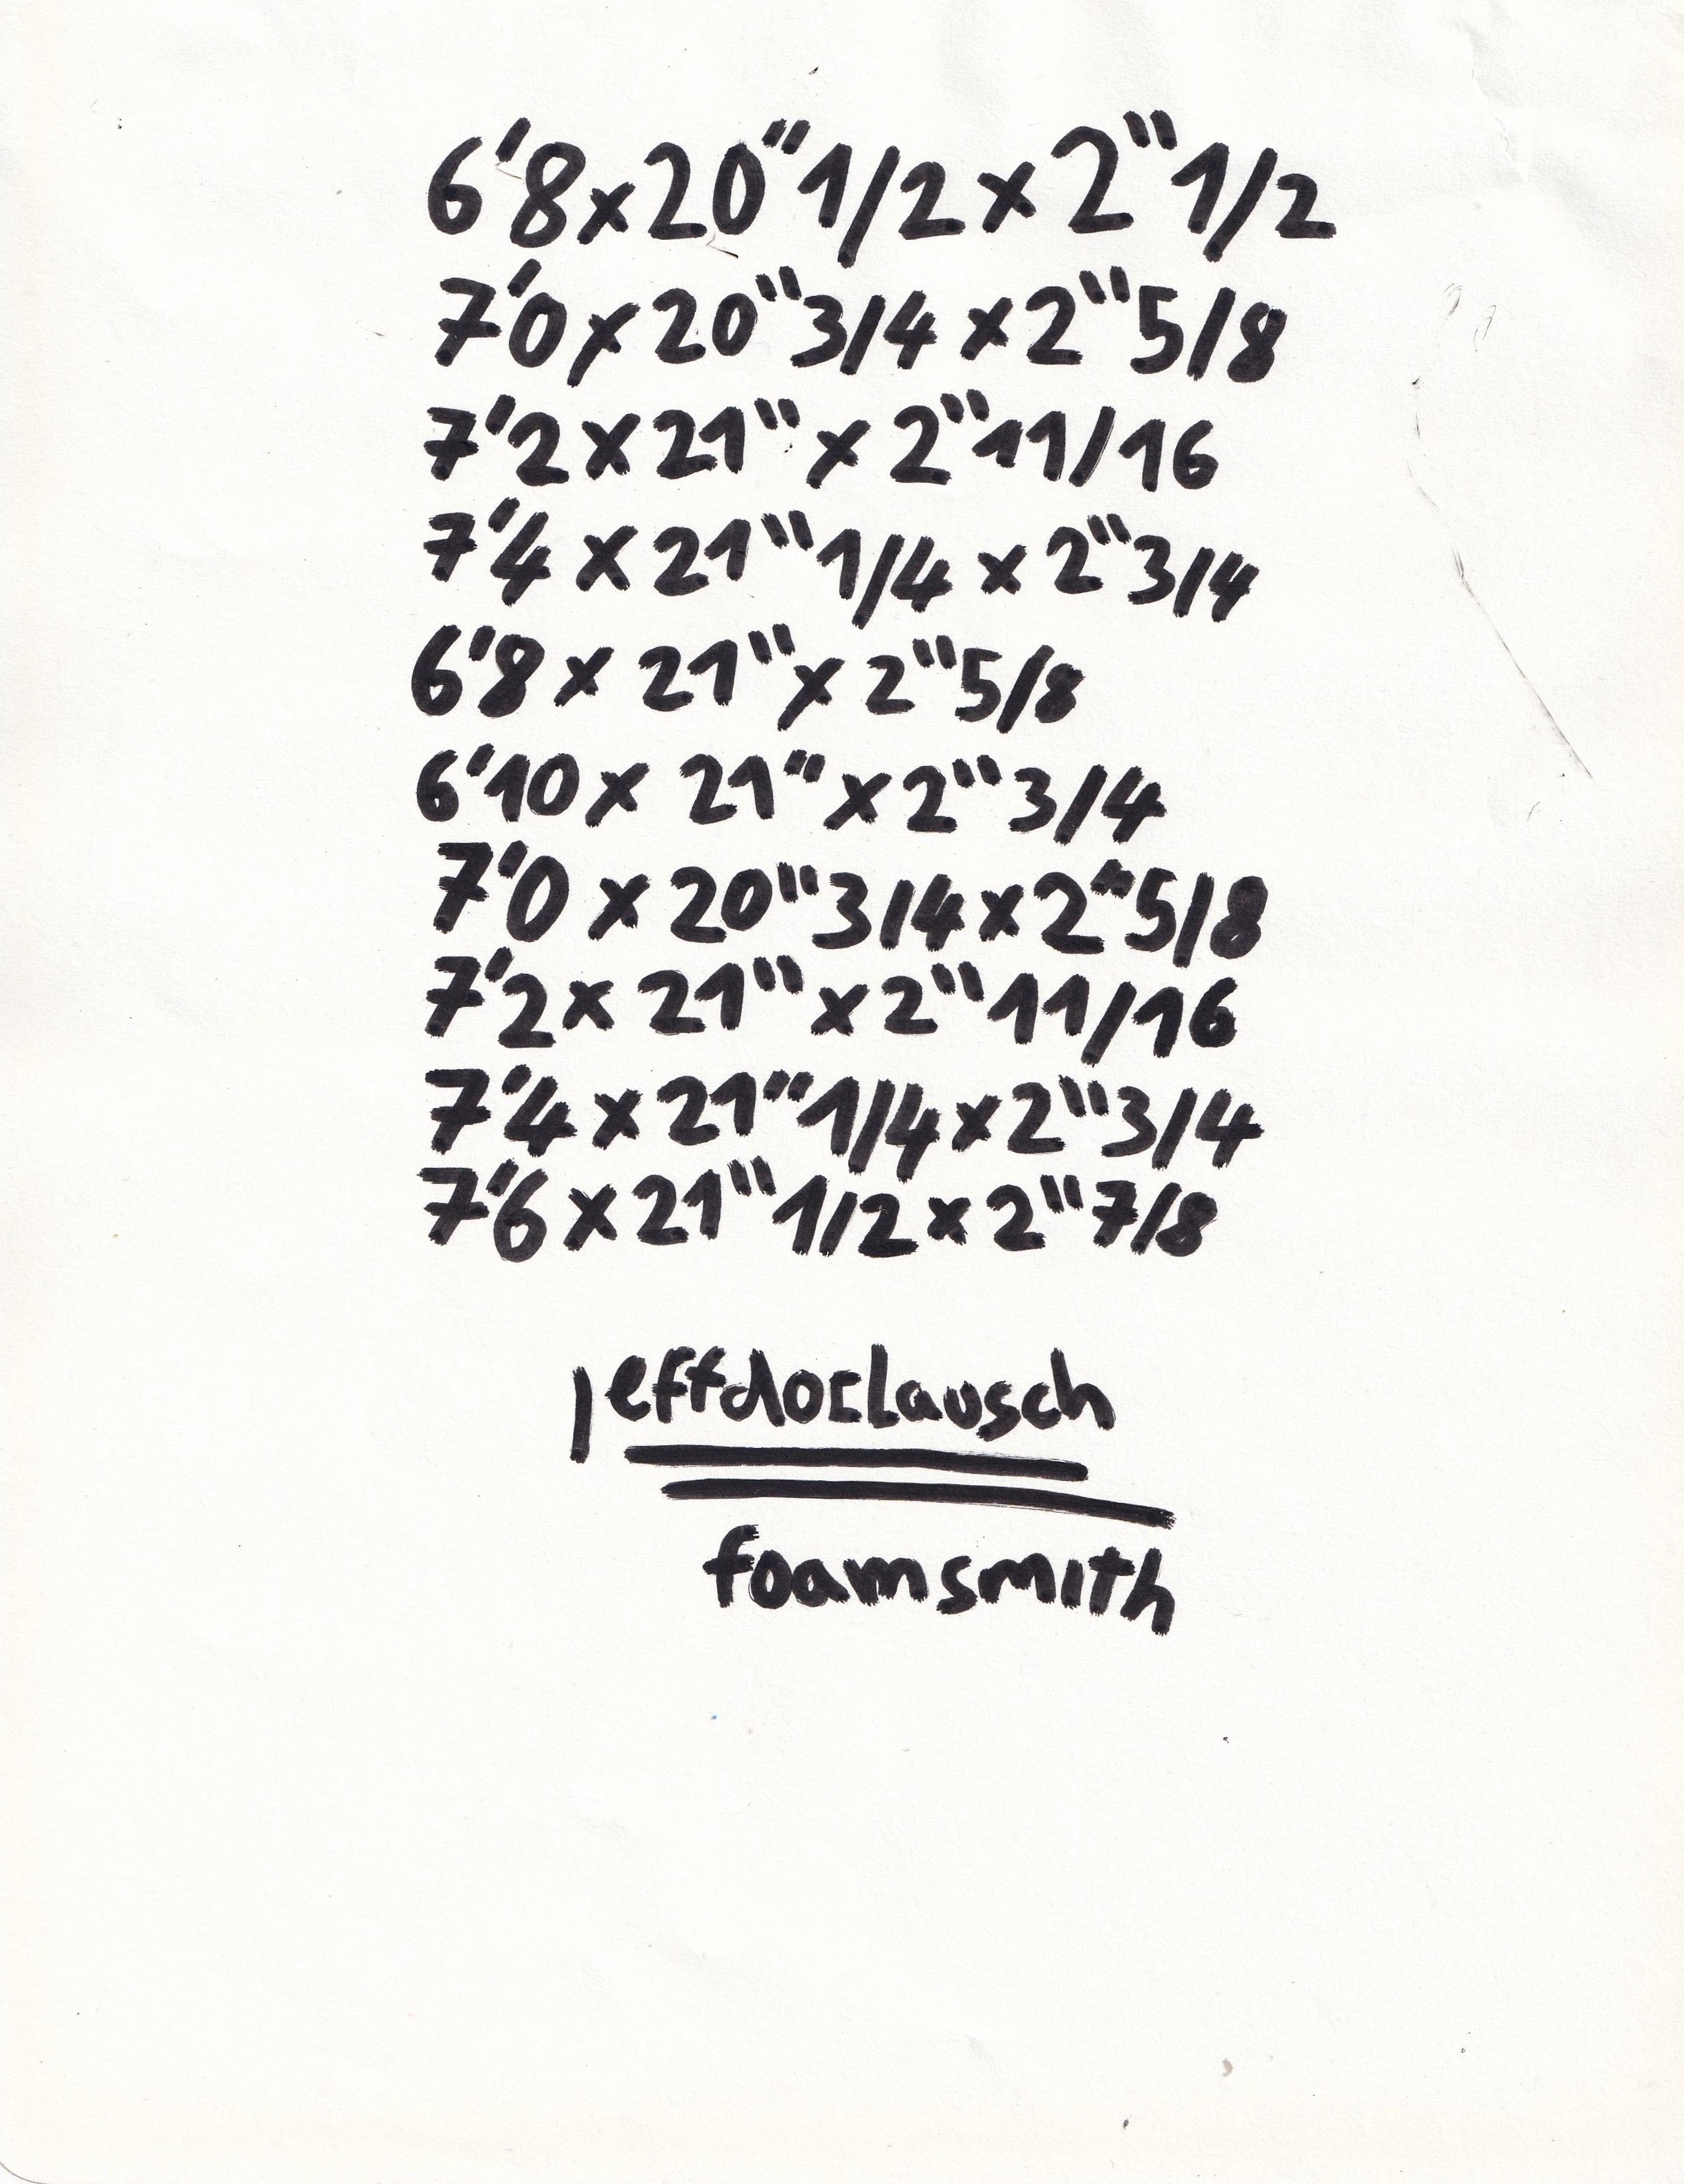 6'8x20"1/2x2"1/2
7'0x20"3/4x2"5/8
7'2x21"x2"11/16
7'4x21"1/4x2"3/4
6'8x21"x2"5/8
6'10x21"x2"3/4
7'0x20"3/4x2"5/8
7'2x21"x2"11/16
7'4x21"1/4x2"3/4
7'6x21"1/2x2"7/8
jeffdoclausch
foamsmith